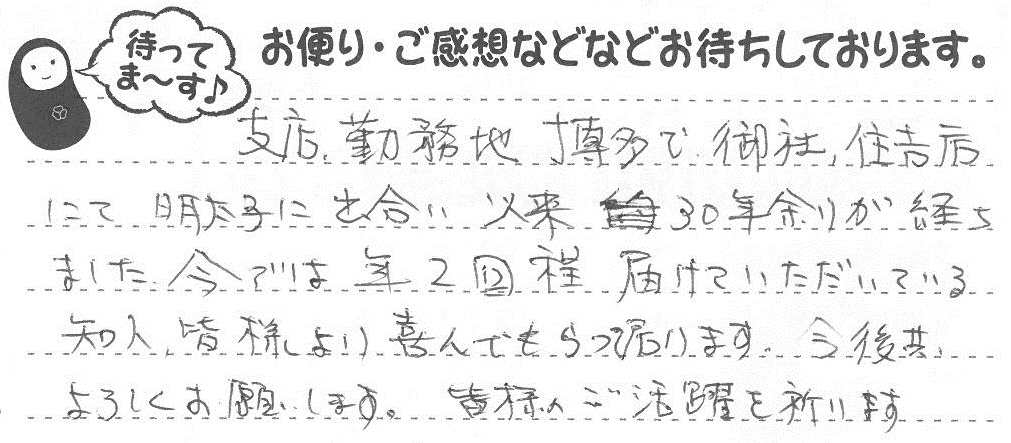 待って
ま〜す♪
お便り・ご感想などなどお待ちしております。
支店、勤務地 博多で 御社、住吉店
にて 明太子に 出合い 以来 30年余りが 経ち
ました 今では 年2回程 届けていただいている
知人、皆様より 喜んでもらって居ります。今後共、
よろしくお願いします。 皆様のご活躍を祈ります